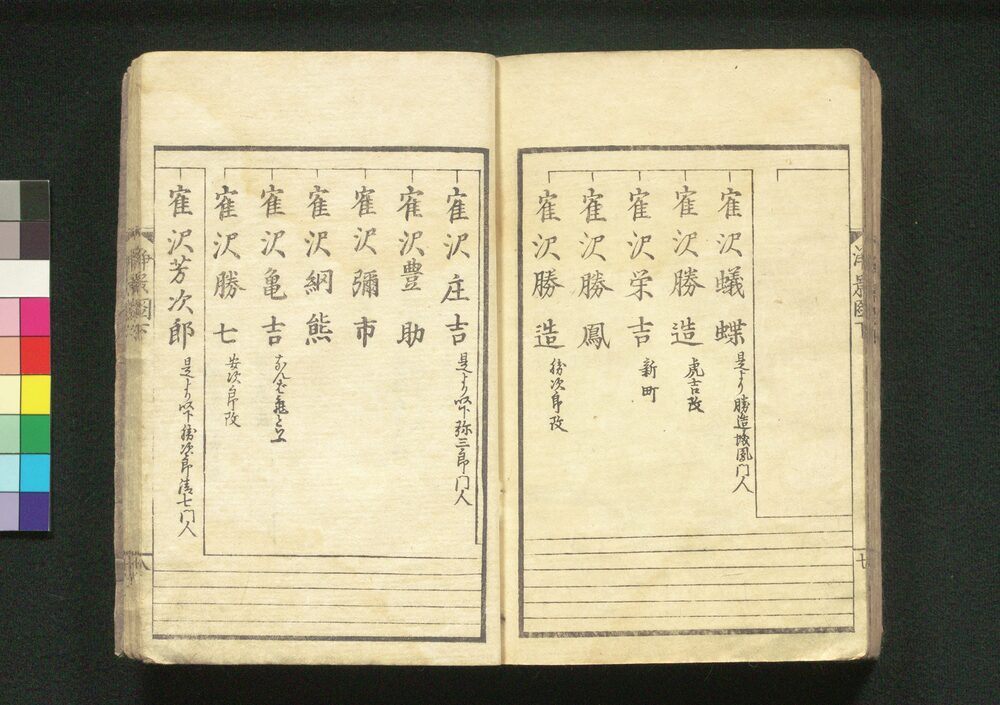 寉沢蟻蝶 是より勝造改鳳門人
寉沢勝造 虎吉改
寉沢栄吉 新町
寉沢勝鳳
寉沢勝造 勝次郎改
七
寉沢庄吉 是より以下弥三郎门人
寉沢豊助
寉沢彌市
寉沢綱熊
寉沢亀吉
寉沢勝七 安次郎改
寉沢芳次郎 是より以下勝次郎清七门人
八